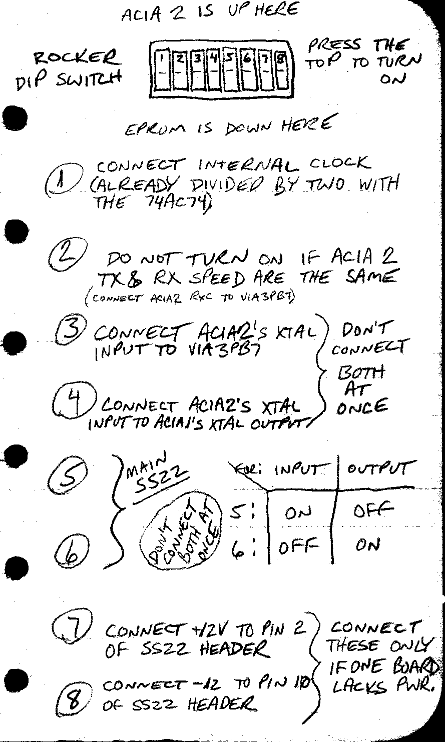 ACIA 2 IS UP HERE
ROCKER
DIP SWITCH
1 2 3 4 5 6 7 8
PRESS THE
TOP TO TURN
ON
EPROM IS DOWN HERE
1 CONNECT INTERNAL CLOCK
(ALREADY DIVIDED BY TWO WITH
THE 74AC74)
2 DO NOT TURN ON IF ACIA 2
TX & RX SPEED ARE THE SAME
(CONNECT ACIA2 RXC TO VIA3PB7)
3 CONNECT ACIA2'S XTAL
INPUT TO VIA3PB7
4 CONNECT ACIA2'S XTAL
INPUT TO ACIA1'S XTAL OUTPUT
DON'T
CONNECT
BOTH
AT
ONCE
5
6
MAIN
SS22
DON'T
CONNECT
BOTH AT
ONCE
FOR: INPUT OUTPUT
5: ON OFF
6: OFF ON
7 CONNECT +12V TO PIN 2
OF SS22 HEADER
8 CONNECT -12 TO PIN 10
OF SS22 HEADER
CONNECT
THESE ONLY
IF ONE BOARD
LACKS PWR.